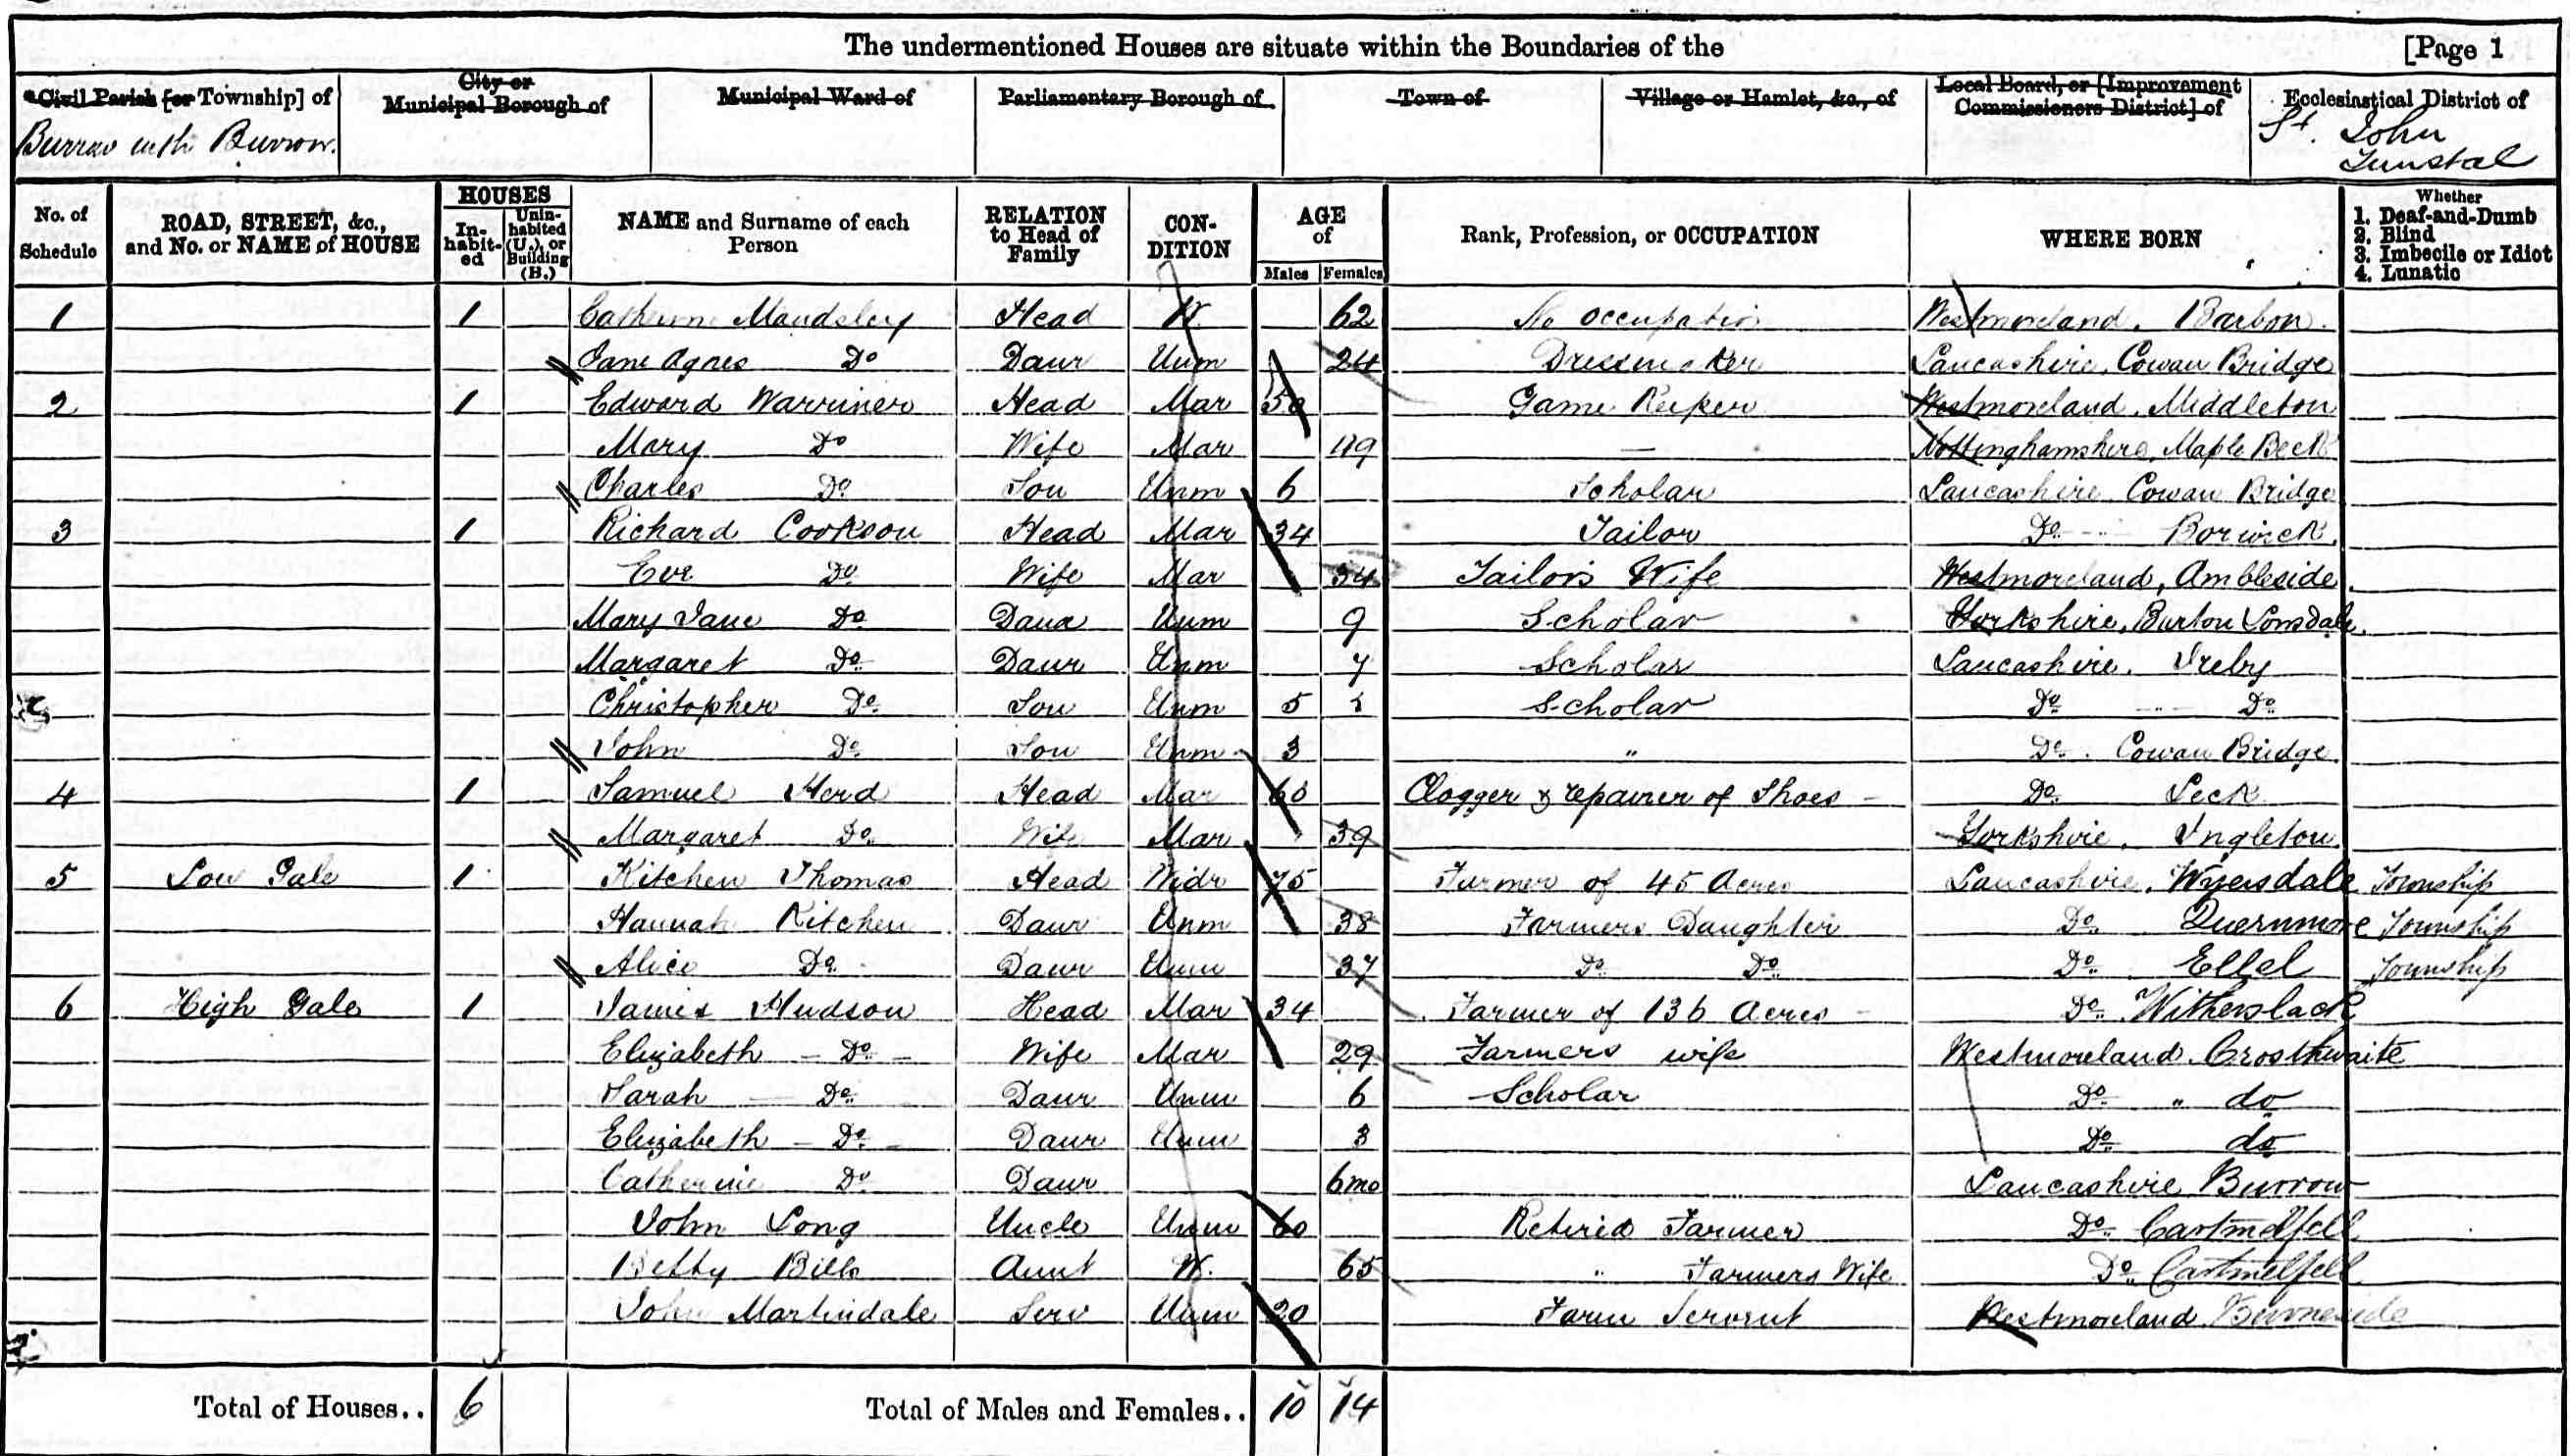 The undermentioned Houses are situate within the Boundaries of the [Page 1
Civil Parish [or Township] of City or Municipal Borough of Municipal Ward of Parliamentary Borough of Town of Village or Hamlet, &c., of Local Board, or [Improvement Commissioners District] of Ecclesiastical District of
Burrow with Burrow. St. John Tunstal
No. of Schedule ROAD, STREET, &c., and No. or NAME of HOUSE HOUSES Inhabited Uninhabited (U.), or Building (B.) NAME and Surname of each Person RELATION to Head of Family CONDITION AGE of Males Females Rank, Profession, or OCCUPATION WHERE BORN Whether 1. Deaf-and-Dumb 2. Blind 3. Imbecile or Idiot 4. Lunatic
1 1 Catherine Maudsley Head W. 62 No occupation Westmoreland. Barbon.
Jane Agnes Do Daur Unm 24 Dressmaker Lancashire, Cowan Bridge
2 1 Edward Warriner Head Mar 50 Game Keeper Westmoreland. Middleton
Mary Do Wife Mar 49 — Nottinghamshire, Maple Beck
Charles Do Son Unm 6 Scholar Lancashire Cowan Bridge
3 1 Richard Cookson Head Mar 34 Tailor Do Borwick.
Eve Do Wife Mar 34 Tailors Wife Westmoreland, Ambleside
Mary Jane Do Daur Unm 9 Scholar Yorkshire, Burton Lonsdale.
Margaret Do Daur Unm 7 Scholar Lancashire. Ireby
Christopher Do Son Unm 5 Scholar Do Do
John Do Son Unm 3 " Do. Cowan Bridge.
4 1 Samuel Herd Head Mar 60 Clogger & repairer of Shoes Do Leck
Margaret Do Wife Mar 39 Yorkshire. Ingleton.
5 Low Gale 1 Kitchen Thomas Head Widr 75 Farmer of 45 Acres Lancashire. Wyersdale Township
Hannah Kitchen Daur Unm 38 Farmers Daughter Do Quernmore Township
Alice Do Daur Unm 37 Do Do Do Ellel Township
6 High Gale 1 James Hudson Head Mar 34 Farmer of 136 Acres Do Witherslack
Elizabeth Do Wife Mar 29 Farmers wife Westmoreland Crosthwaite
Sarah Do Daur Unm 6 Scholar Do " do
Elizabeth Do Daur Unm 3 Do do
Catherine Do Daur 6mo Lancashire Burrow
John Long Uncle Unm 60 Retired Farmer Do Cartmelfell
Betty Bills Aunt W. 65 " Farmers Wife Do Cartmelfell
John Martindale Serv Unm 20 Farm Servant Westmoreland Burneside
Total of Houses.. 6 Total of Males and Females.. 10 14